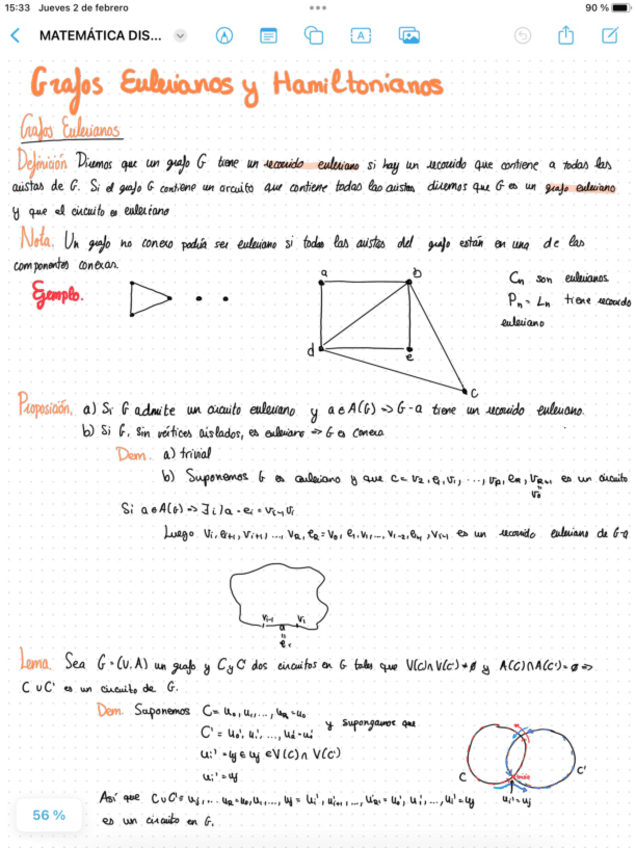 15:33 Jueves 2 de febrero
90 %
MATEMÁTICA DIS...
Grafos Eulerianos y Hamiltonianos
Grafos Eulerianos
Definición Diremos que un grafo G tiene un recorrido euleriano si hay un recorrido que contiene a todas las
aristas de G. Si el grafo G contiene un circuito que contiene todas las aristas diremos que G es un grafo euleriano
y que el circuito es euleriano
Nota. Un grafo no conexo podría ser euleriano si todas las aristas del grafo están en una de las
componentes conexas.
Ejemplo.
a
b
d
e
c
Cn son eulerianos.
Pn = Ln tiene recorrido
euleriano
Proposición. a) Si G admite un circuito euleriano y a∈A(G) => G-a tiene un recorrido euleriano.
b) Si G, sin vértices aislados, es euleriano => G es conexo
Dem. a) trivial
b) Suponemos G es euleriano y que es un circuito
Si a∈A(G) => ∃i/a = ei = vi-1 vi
Luego es un recorrido euleriano de G-a
vi-1
vi
a
"
ei
Lema. Sea G=(V,A) un grafo y C y C' dos circuitos en G tales que V(C)∩V(C')≠∅ y A(C)∩A(C')=∅ =>
C∪C' es un circuito de G.
Dem. Suponemos C = u0, u1, ..., uk = u0
y supongamos que
ui' = uj ∈ V(C) ∩ V(C')
ui' = uj
C
C'
ui' = uj
Así que C∪C' =
es un circuito en G.
56 %